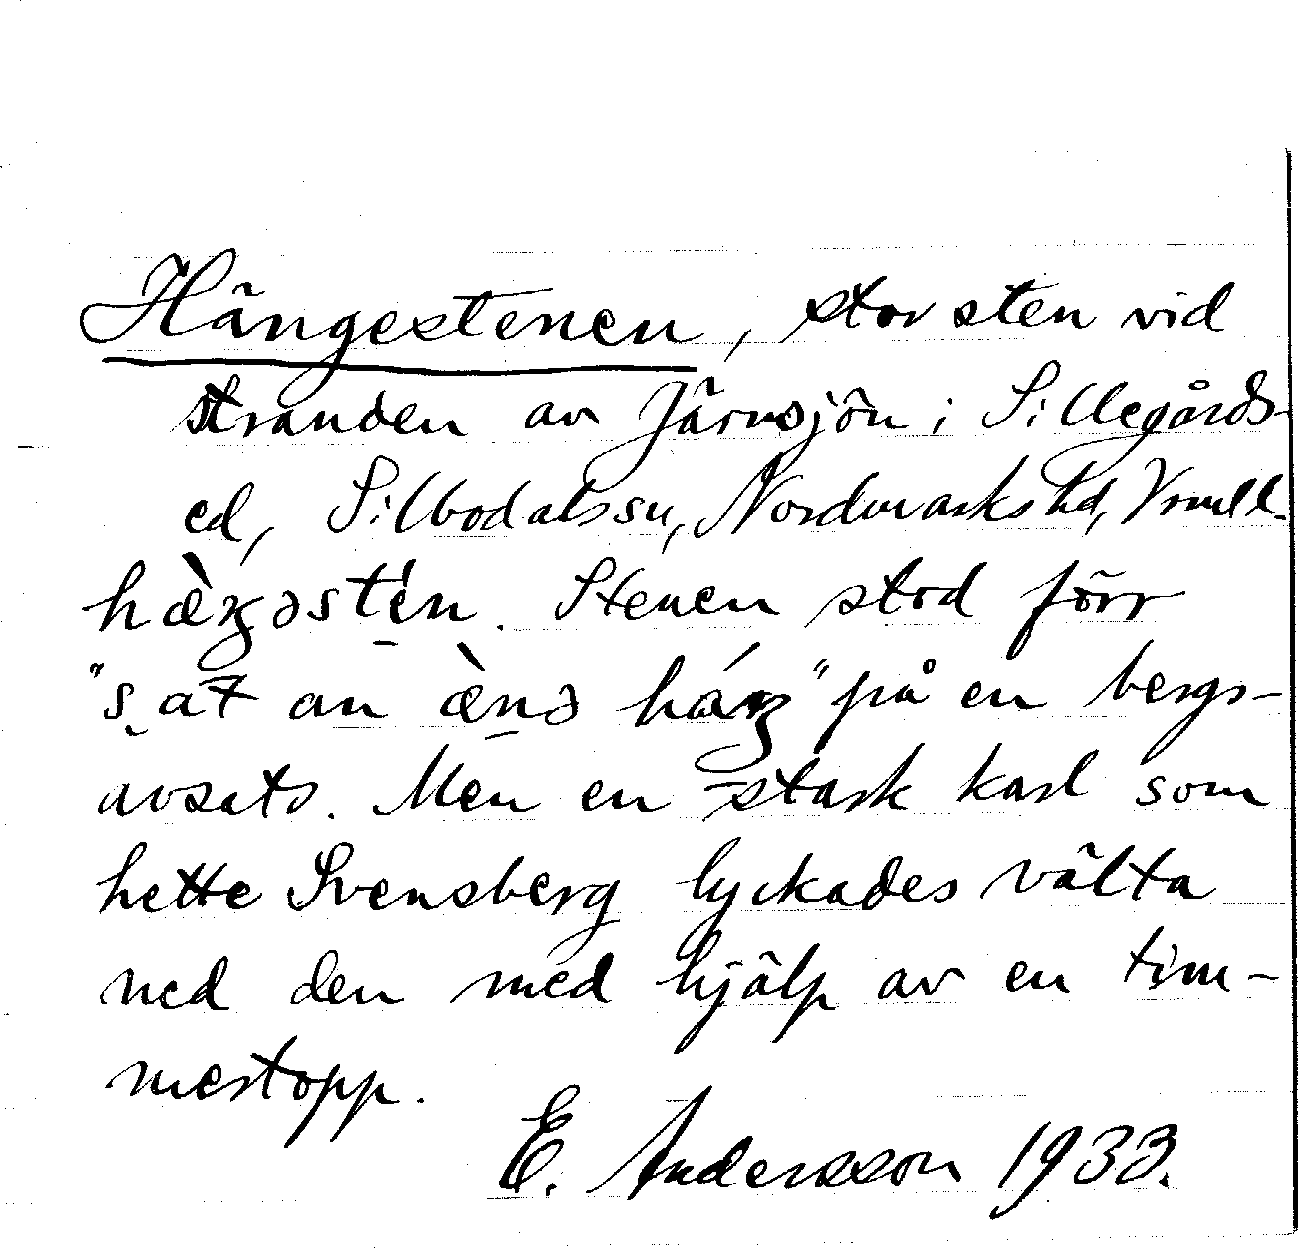 Hängestenen, stor sten vid
stranden av Järnsjön i Sillegårds-
ed, Silbodals sn, Nordmarks hd, Vrml l.
hæ̀ŋəstén. Stenen stod förr
"s at an æ̀nə háŋ" på en bergs-
avsats. Men en stark karl som
hette Svensberg lyckades välta
ned den med hjälp av en tim-
mertopp.
E. Andersson 1933.